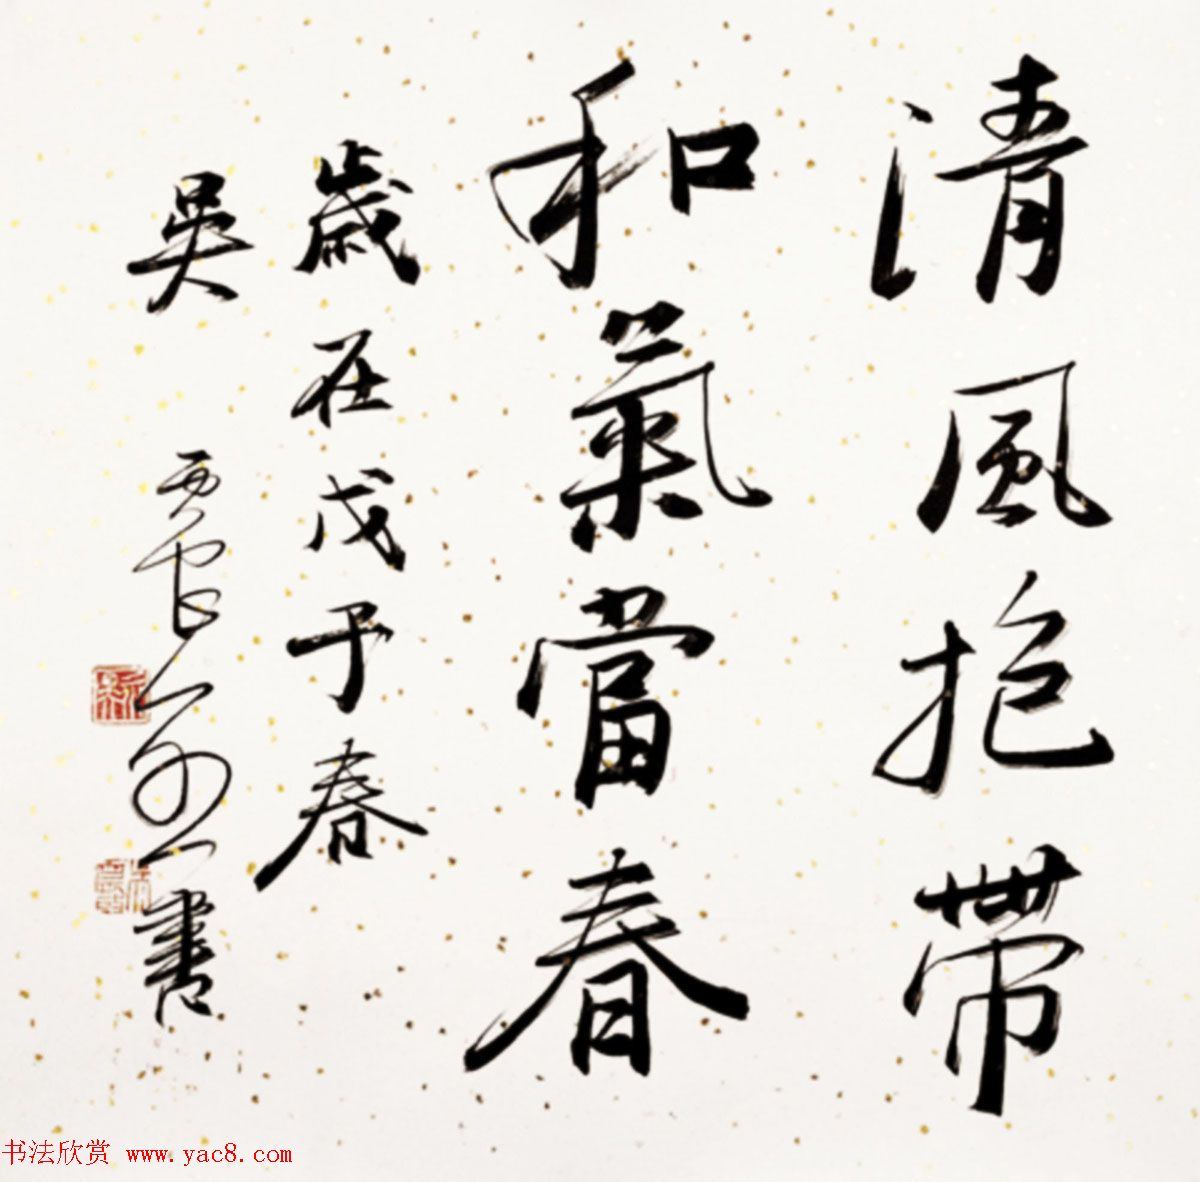 清風抱帶
和氣當春
歲在戊子春
吳
書
书法欣赏 www.yac8.com